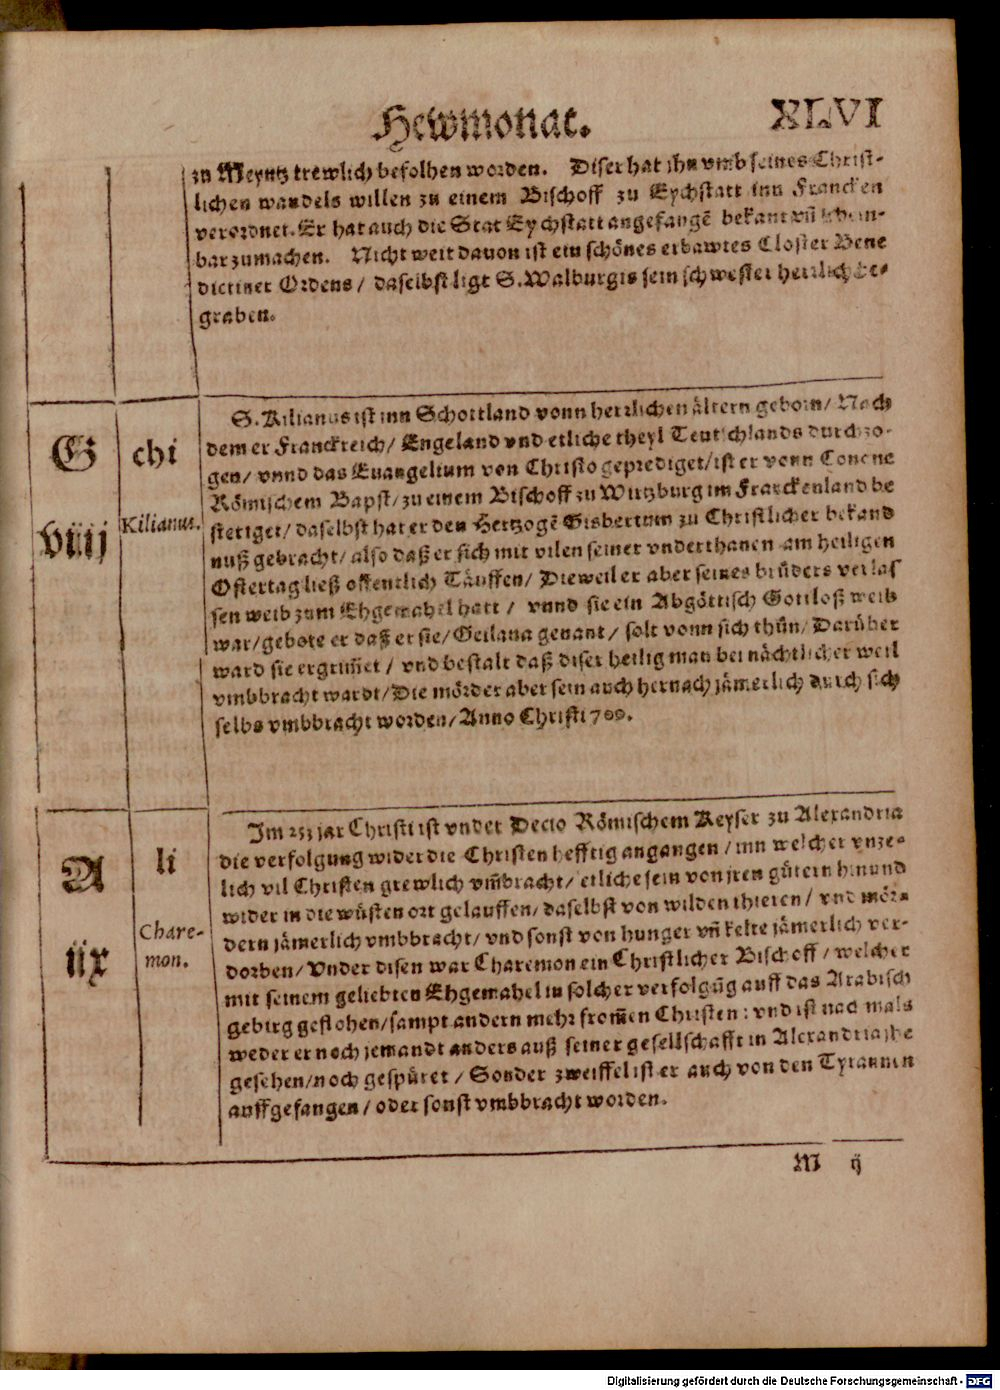 Hewmonat. XLVI
zu Meyntz trewlich befolhen worden. Diser hat jhn vmb seines Christ-
lichen wandels willen zu einem Bischoff zu Eychstatt inn Francken
verordnet. Er hat auch die Stat Eychstatt angefangē bekant vn̄ schein-
bar zumachen. Nicht weit dauon ist ein schönes erbawtes Closter Bene
dictiner Ordens / daselbst ligt S. Walburgis sein schwester herrlich be-
graben.
G chi
viij Kilianus.
S. Kilianus ist inn Schottland vonn herrlichen ältern geborn / Nach
dem er Franckreich / Engeland vnd etliche theyl Teutschlands durchzo-
gen / vnnd das Euangelium von Christo geprediget / ist er vonn Conone
Römischem Bapst / zu einem Bischoff zu Wirtzburg im Franckenland be
stetiget / daselbst hat er den Hertzogē Gisbertum zu Christlicher bekand
nuß gebracht / also daß er sich mit vilen seiner vnderthanen am heiligen
Ostertag ließ offentlich Täuffen / Dieweil er aber seines brůders verlas
sen weib zum Ehgemahel hatt / vnnd sie ein Abgöttisch Gottloß weib
war / gebote er daß er sie / Geilana genant / solt vonn sich thůn / Darüber
ward sie ergrim̄et / vnd bestalt daß diser heilig man bei nächtlicher weil
vmbbracht wardt / Die mörder aber sein auch hernach jämerlich durch sich
selbs vmbbracht worden / Anno Christi 700.
A li
iix Chare-
mon.
Im 253 jar Christi ist vnder Decio Römischem Keyser zu Alexandria
die verfolgung wider die Christen hefftig angangen / inn welcher vnze-
lich vil Christen grewlich vm̄bracht / etliche sein von jren gütern hin vnd
wider in die wüsten ort gelauffen / daselbst von wilden thieren / vnd mör-
dern jämerlich vmbbracht / vnd sonst von hunger vn̄ kelte jämerlich ver-
dorben / Vnder disen war Charemon ein Christlicher Bischoff / welcher
mit seinem geliebten Ehgemahel in solcher verfolgūg auff das Arabisch
gebirg geflohen / sampt andern mehr from̄en Christen : vnd ist nach mals
weder er noch jemandt anders auß seiner gesellschafft in Alexandria jhe
gesehen / noch gespüret / Sonder zweiffel ist er auch von den Tyrannen
auffgefangen / oder sonst vmbbracht worden.
M ij
Digitalisierung gefördert durch die Deutsche Forschungsgemeinschaft - DFG